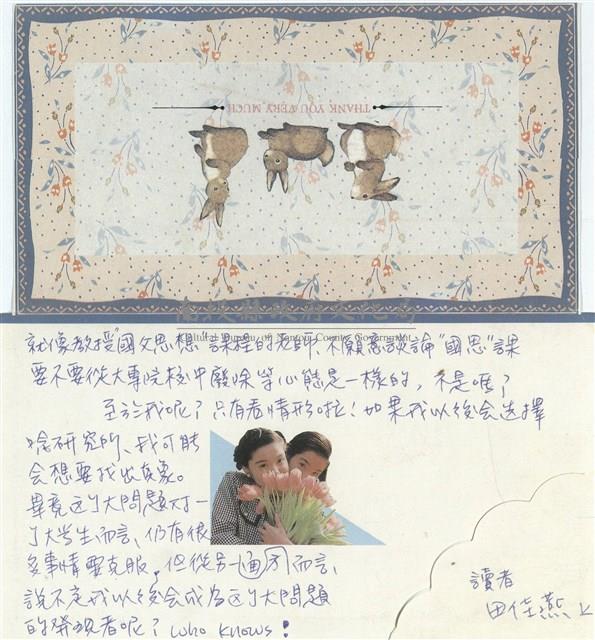 THANK YOU VERY MUCH
南投縣政府文化局
Cultural Bureau of Nantou County Government
就像教授"國父思想"課程的老師,不願意談論"國思"課
要不要從大專院校中廢除等心態是一樣的,不是嗎?
至於我呢?只有看情形啦!如果我以後會選擇
唸研究所、我可能
會想要找出真象。
畢竟這个大問題对一
个大学生而言、仍有很
多事情要克服,但從另一方面而言、
說不定我以後會成為這个大問題
的發現者呢?who knows!
讀者
田佳燕上